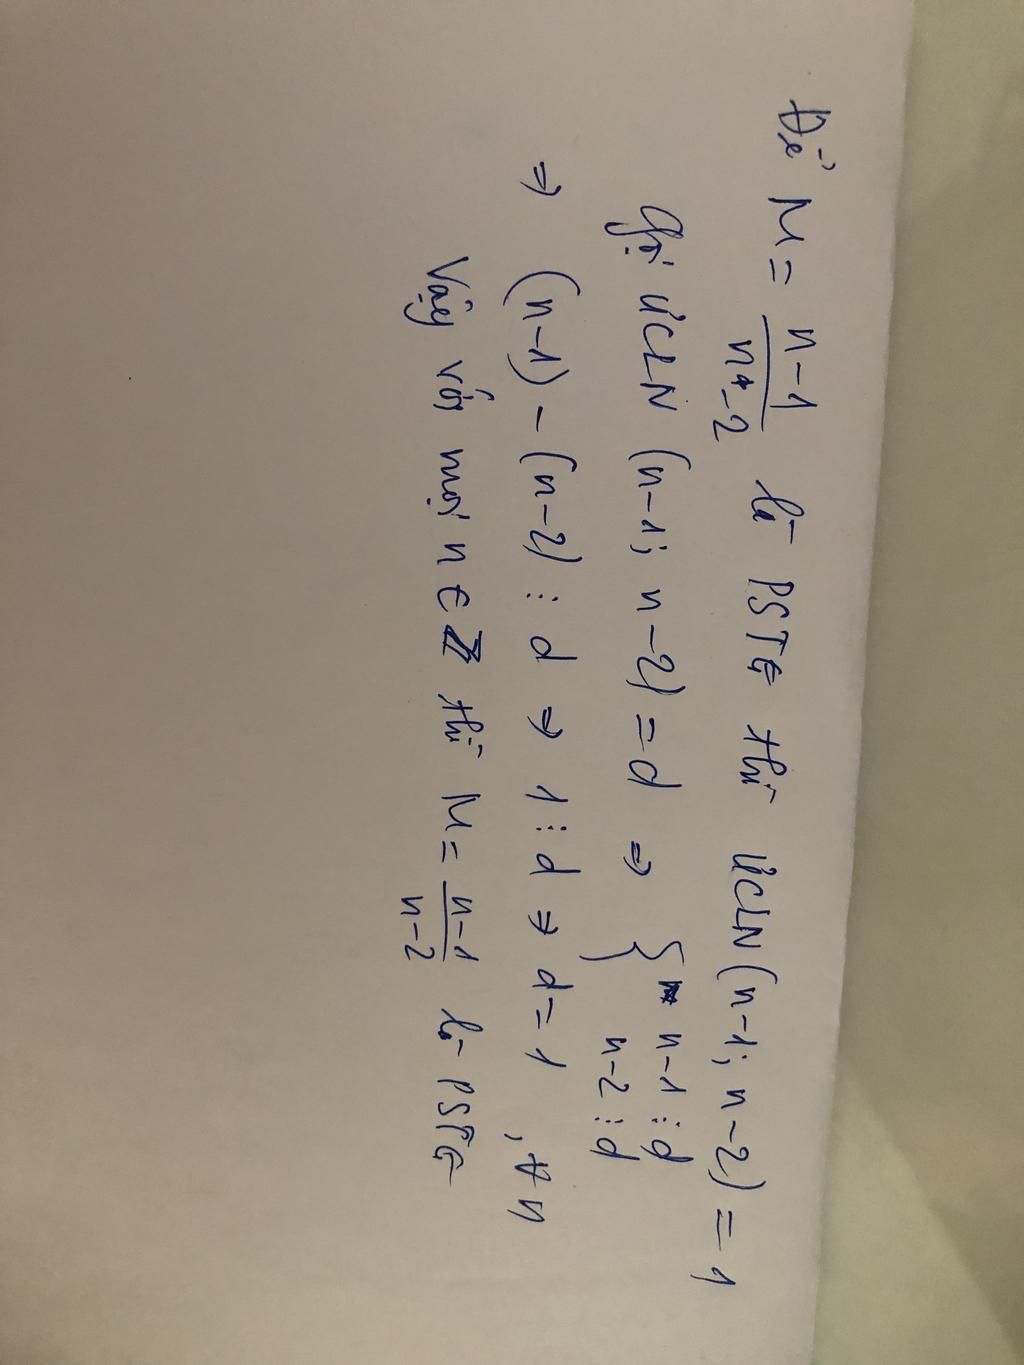 Để M = n-1/n-2 là PSTG thì ƯCLN(n-1; n-2) = 1
Gọi ƯCLN (n-1; n-2) = d ⇒ { n-1 ⋮ d
n-2 ⋮ d
⇒ (n-1) - (n-2) ⋮ d ⇒ 1 ⋮ d ⇒ d = 1 , ∀ n
Vậy với mọi n ∈ Z thì M = n-1/n-2 là PSTG